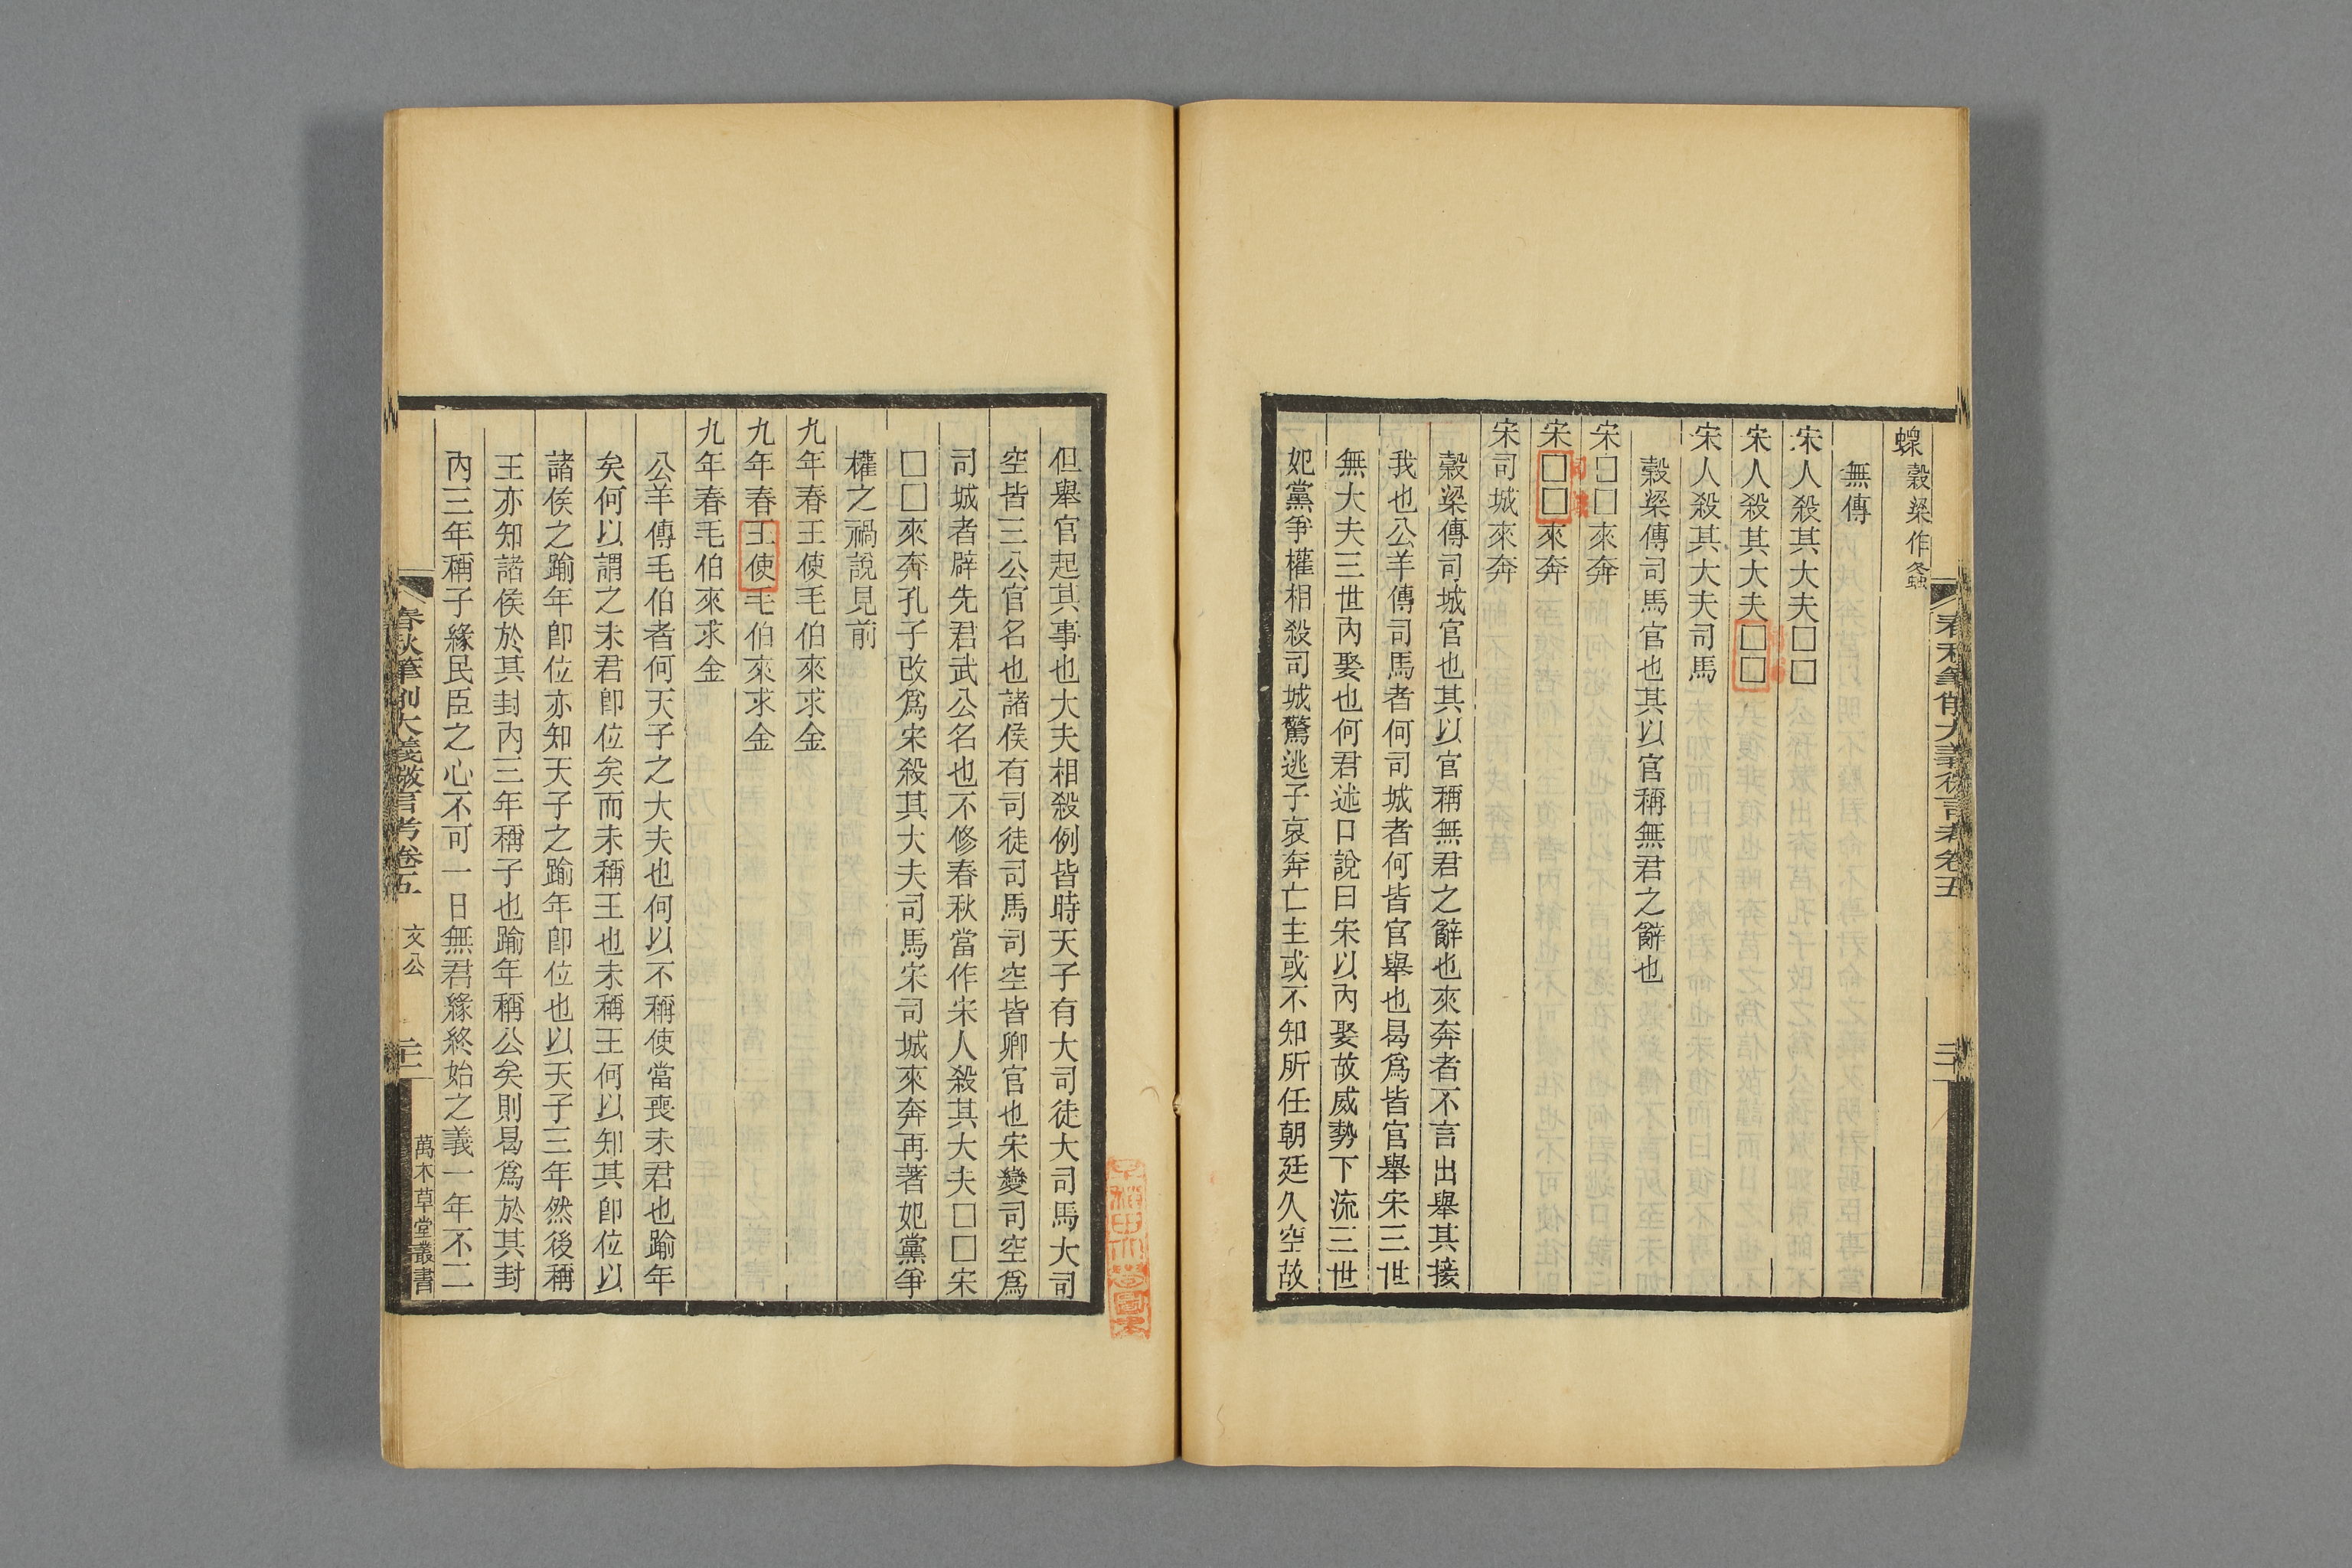 春秋筆削大義微言考卷五
螟穀梁作螽
無傳
宋人殺其大夫□□
宋人殺其大夫□□
宋人殺其大夫司馬
穀梁傳司馬官也其以官稱無君之辭也
宋□□來奔
宋□□來奔
宋司城來奔
穀梁傳司城官也其以官稱無君之辭也來奔者不言出舉其接
我也公羊傳司馬者何司城者何皆官舉也曷爲皆官舉宋三世
無大夫三世內娶也何君述口說曰宋以內娶故威勢下流三世
妃黨爭權相殺司城驚逃子哀奔亡主或不知所任朝廷久空故
但舉官起其事也大夫相殺例皆時天子有大司徒大司馬大司
空皆三公官名也諸侯有司徒司馬司空皆卿官也宋變司空爲
司城者辟先君武公名也不修春秋當作宋人殺其大夫□□宋
□□來奔孔子改爲宋殺其大夫司馬宋司城來奔再著妃黨爭
權之禍說見前
九年春王使毛伯來求金
九年春王使毛伯來求金
九年春毛伯來求金
公羊傳毛伯者何天子之大夫也何以不稱使當喪未君也踰年
矣何以謂之未君卽位矣而未稱王也未稱王何以知其卽位以
諸侯之踰年卽位亦知天子之踰年卽位也以天子三年然後稱
王亦知諸侯於其封內三年稱子也踰年稱公矣則曷爲於其封
內三年稱子緣民臣之心不可一日無君緣終始之義一年不二
春秋筆削大義微言考卷五
文公
萬木草堂叢書